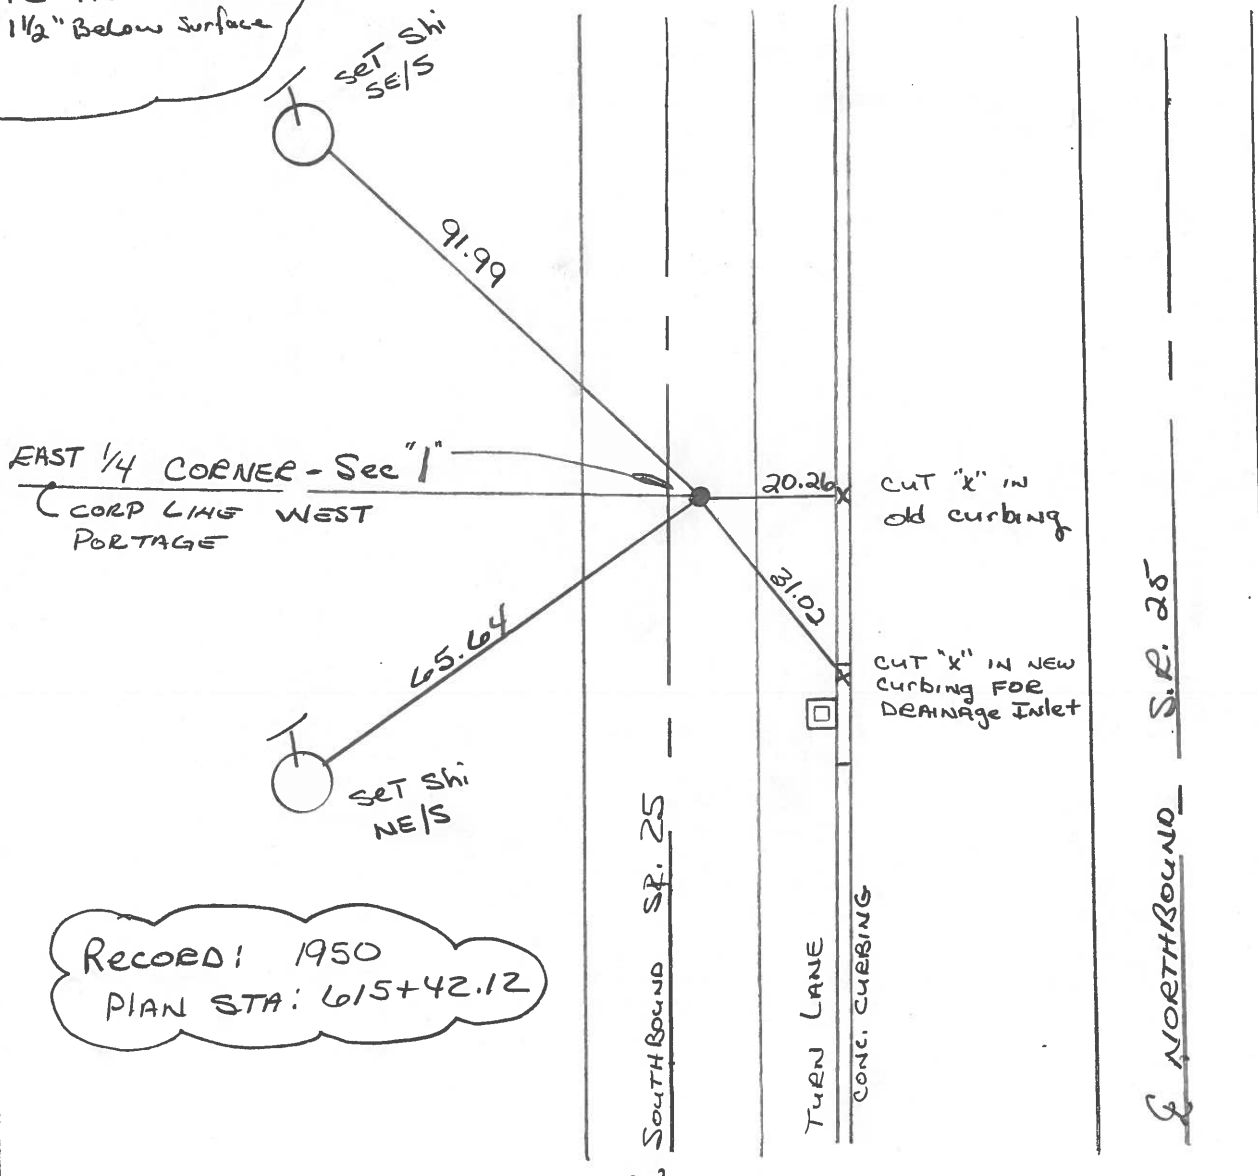 1½" Below Surface
SET Shi
SE/S
91.99
EAST 1/4 CORNER - Sec "1"
CORP LINE WEST
PORTAGE
20.26
CUT "X" IN
old curbing
31.02
CUT "X" IN NEW
curbing FOR
DRAINAge Inlet
65.64
SET Shi
NE/S
RECORD: 1950
PLAN STA: 615+42.12
SOUTHBOUND SR. 25
TURN LANE
CONC. CURBING
℄ NORTHBOUND S.R. 25